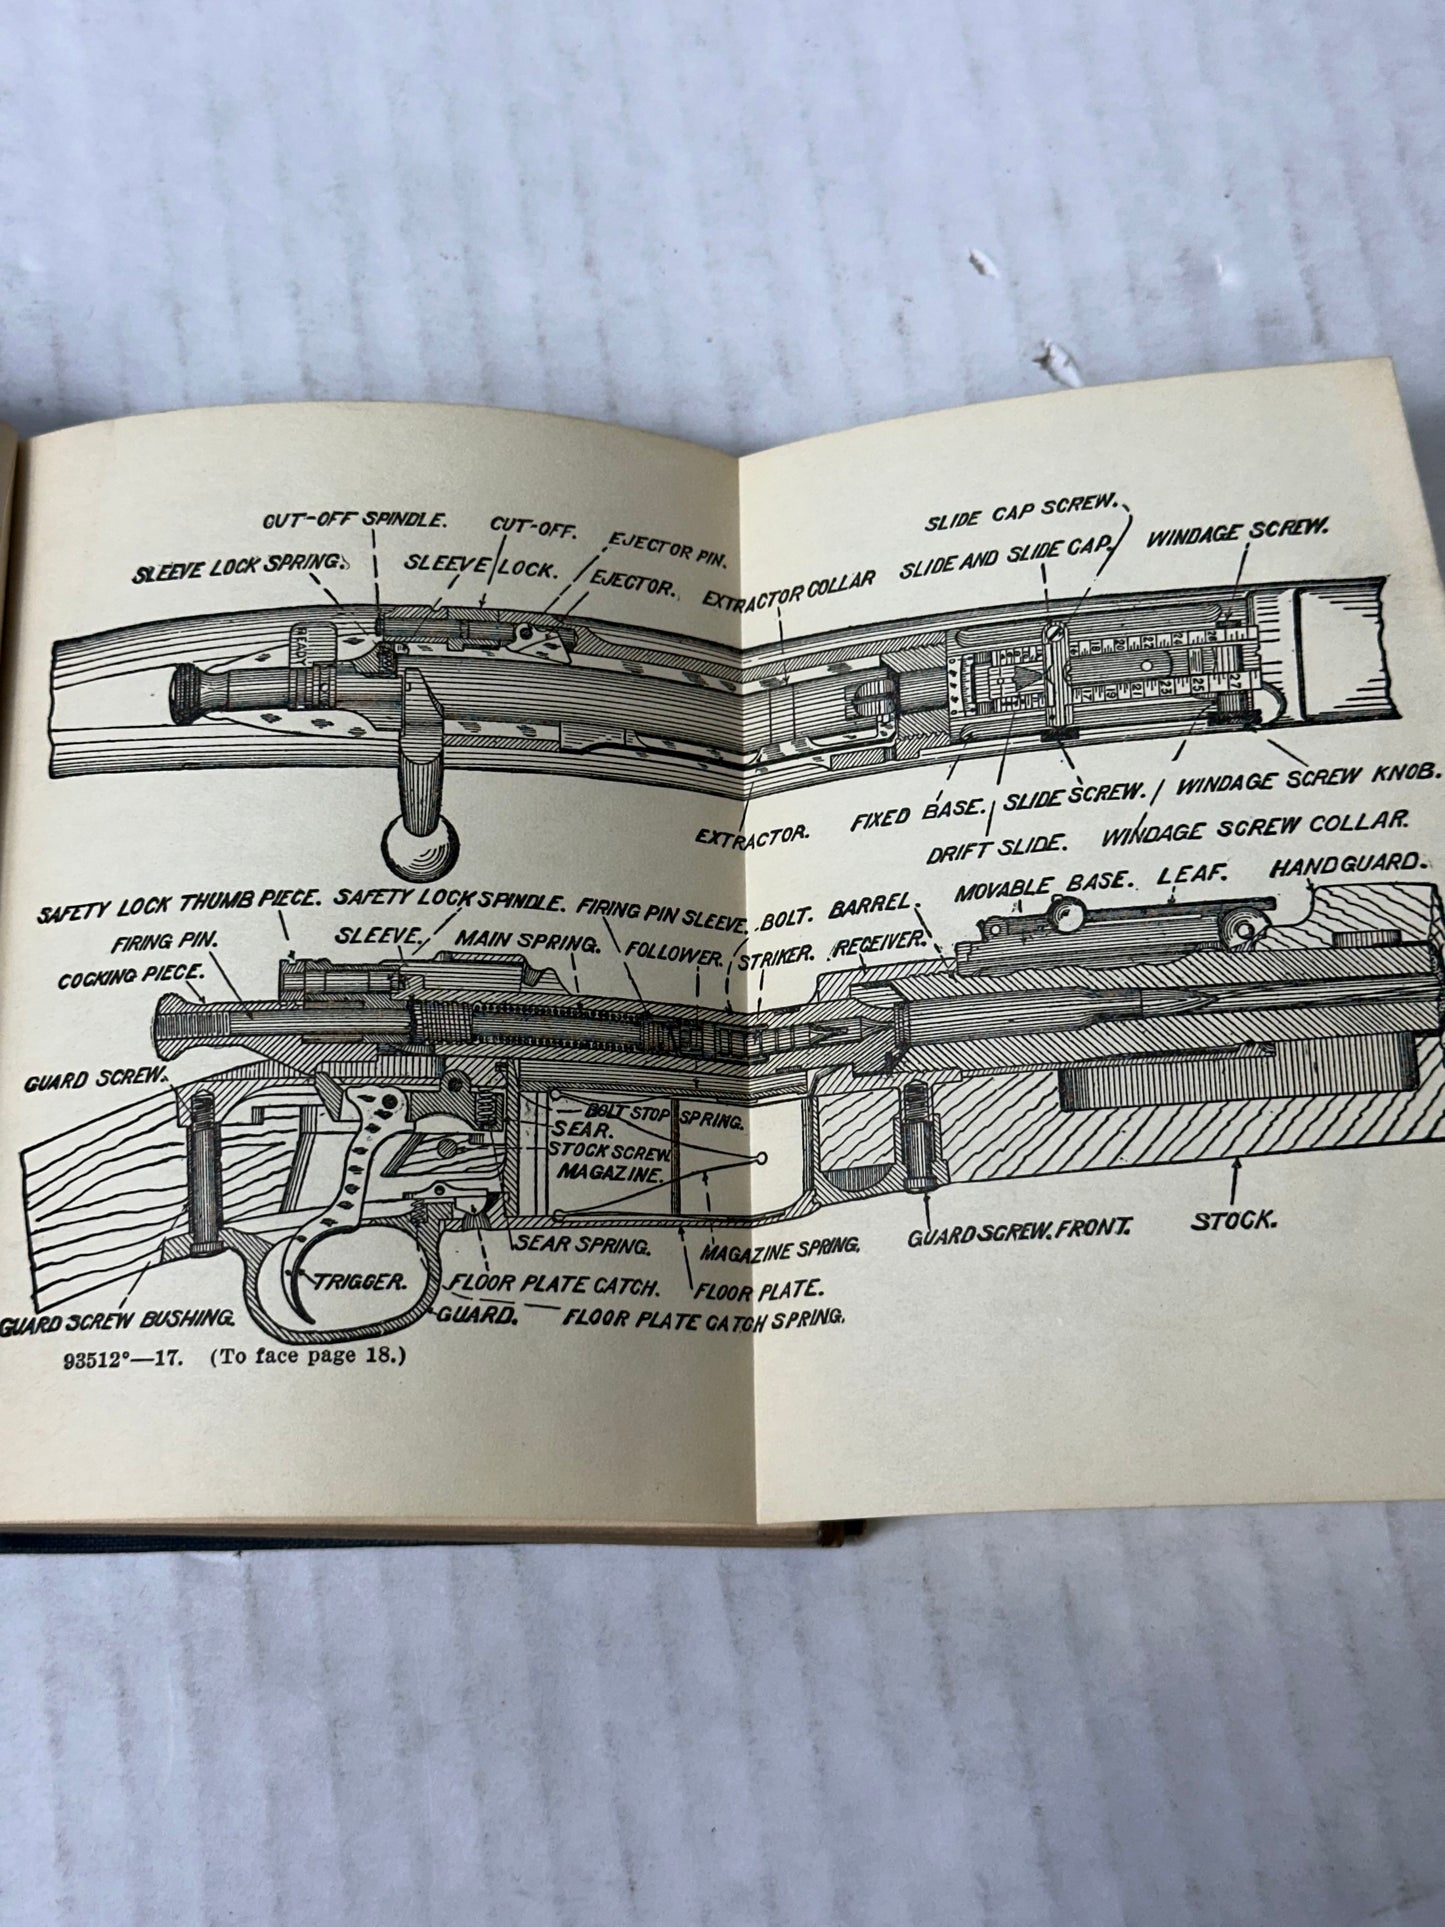 CUT-OFF SPINDLE. CUT-OFF. EJECTOR PIN.
SLEEVE LOCK SPRING. SLEEVE LOCK. EJECTOR. EXTRACTOR COLLAR
SLIDE CAP SCREW.
SLIDE AND SLIDE CAP. WINDAGE SCREW.
READY
EXTRACTOR. FIXED BASE. SLIDE SCREW. WINDAGE SCREW KNOB.
DRIFT SLIDE. WINDAGE SCREW COLLAR.
SAFETY LOCK THUMB PIECE. SAFETY LOCK SPINDLE. FIRING PIN SLEEVE. BOLT. BARREL. MOVABLE BASE. LEAF. HAND GUARD.
FIRING PIN. SLEEVE. MAIN SPRING. FOLLOWER. STRIKER. RECEIVER.
COCKING PIECE.
GUARD SCREW.
BOLT STOP SPRING.
SEAR.
STOCK SCREW.
MAGAZINE.
SEAR SPRING. MAGAZINE SPRING. GUARD SCREW. FRONT. STOCK.
TRIGGER. FLOOR PLATE CATCH. FLOOR PLATE.
GUARD SCREW BUSHING. GUARD. FLOOR PLATE CATCH SPRING.
93512°—17. (To face page 18.)